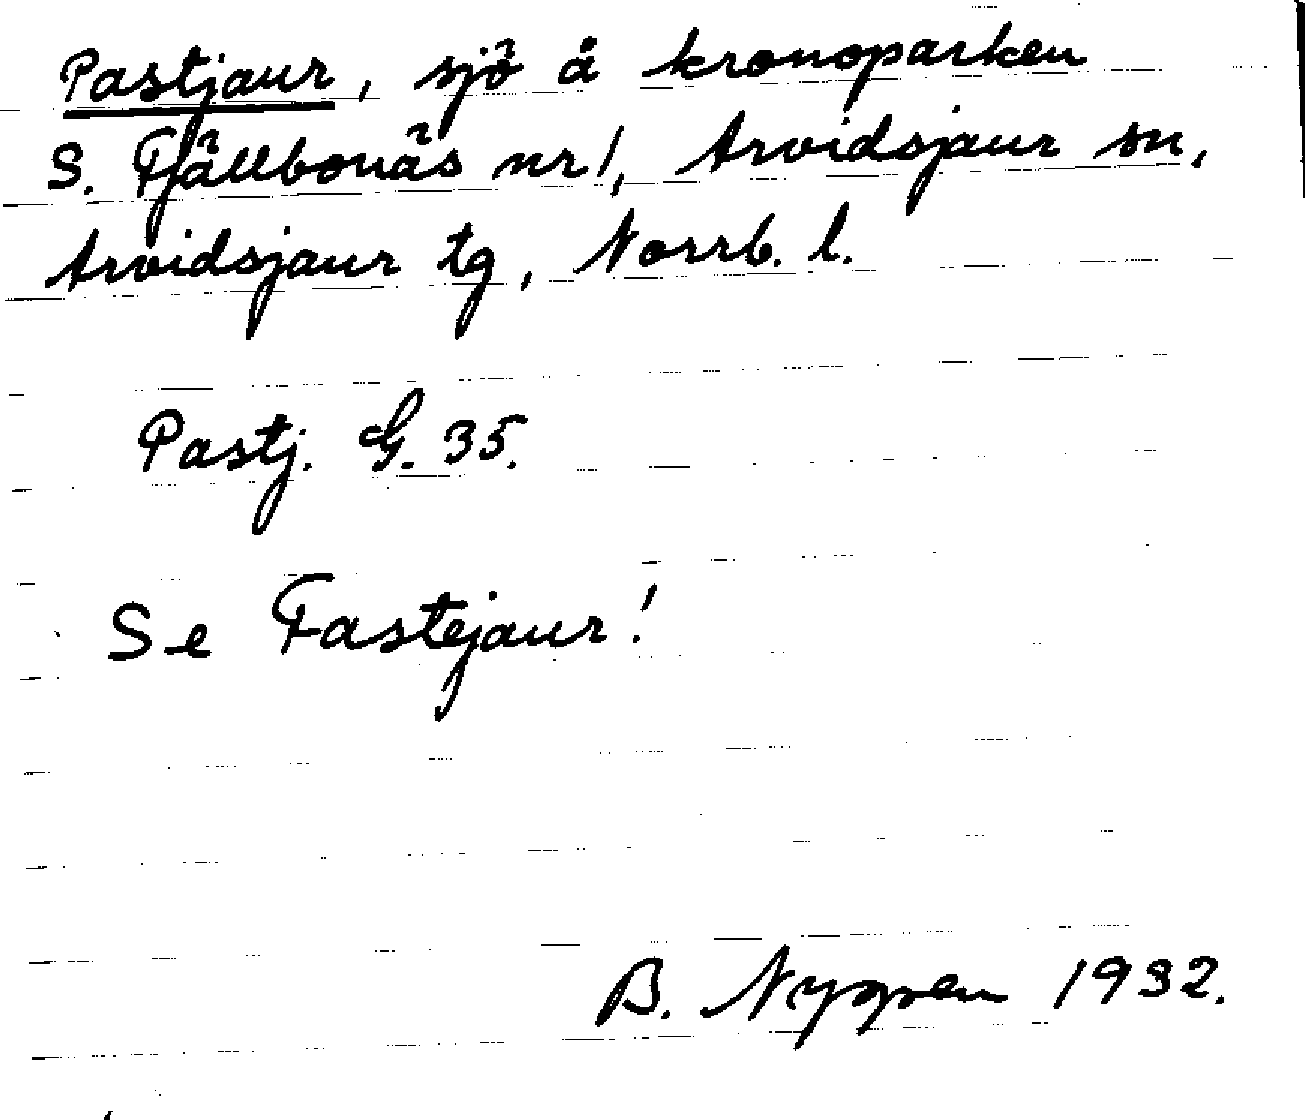 Pastjaur, sjö å kronoparken
S. Fjällbonäs nr 1, Arvidsjaur sn,
Arvidsjaur tg, Norrb. l.
Pastj. G. 35.
Se Fastejaur!
B. Nygren 1932.